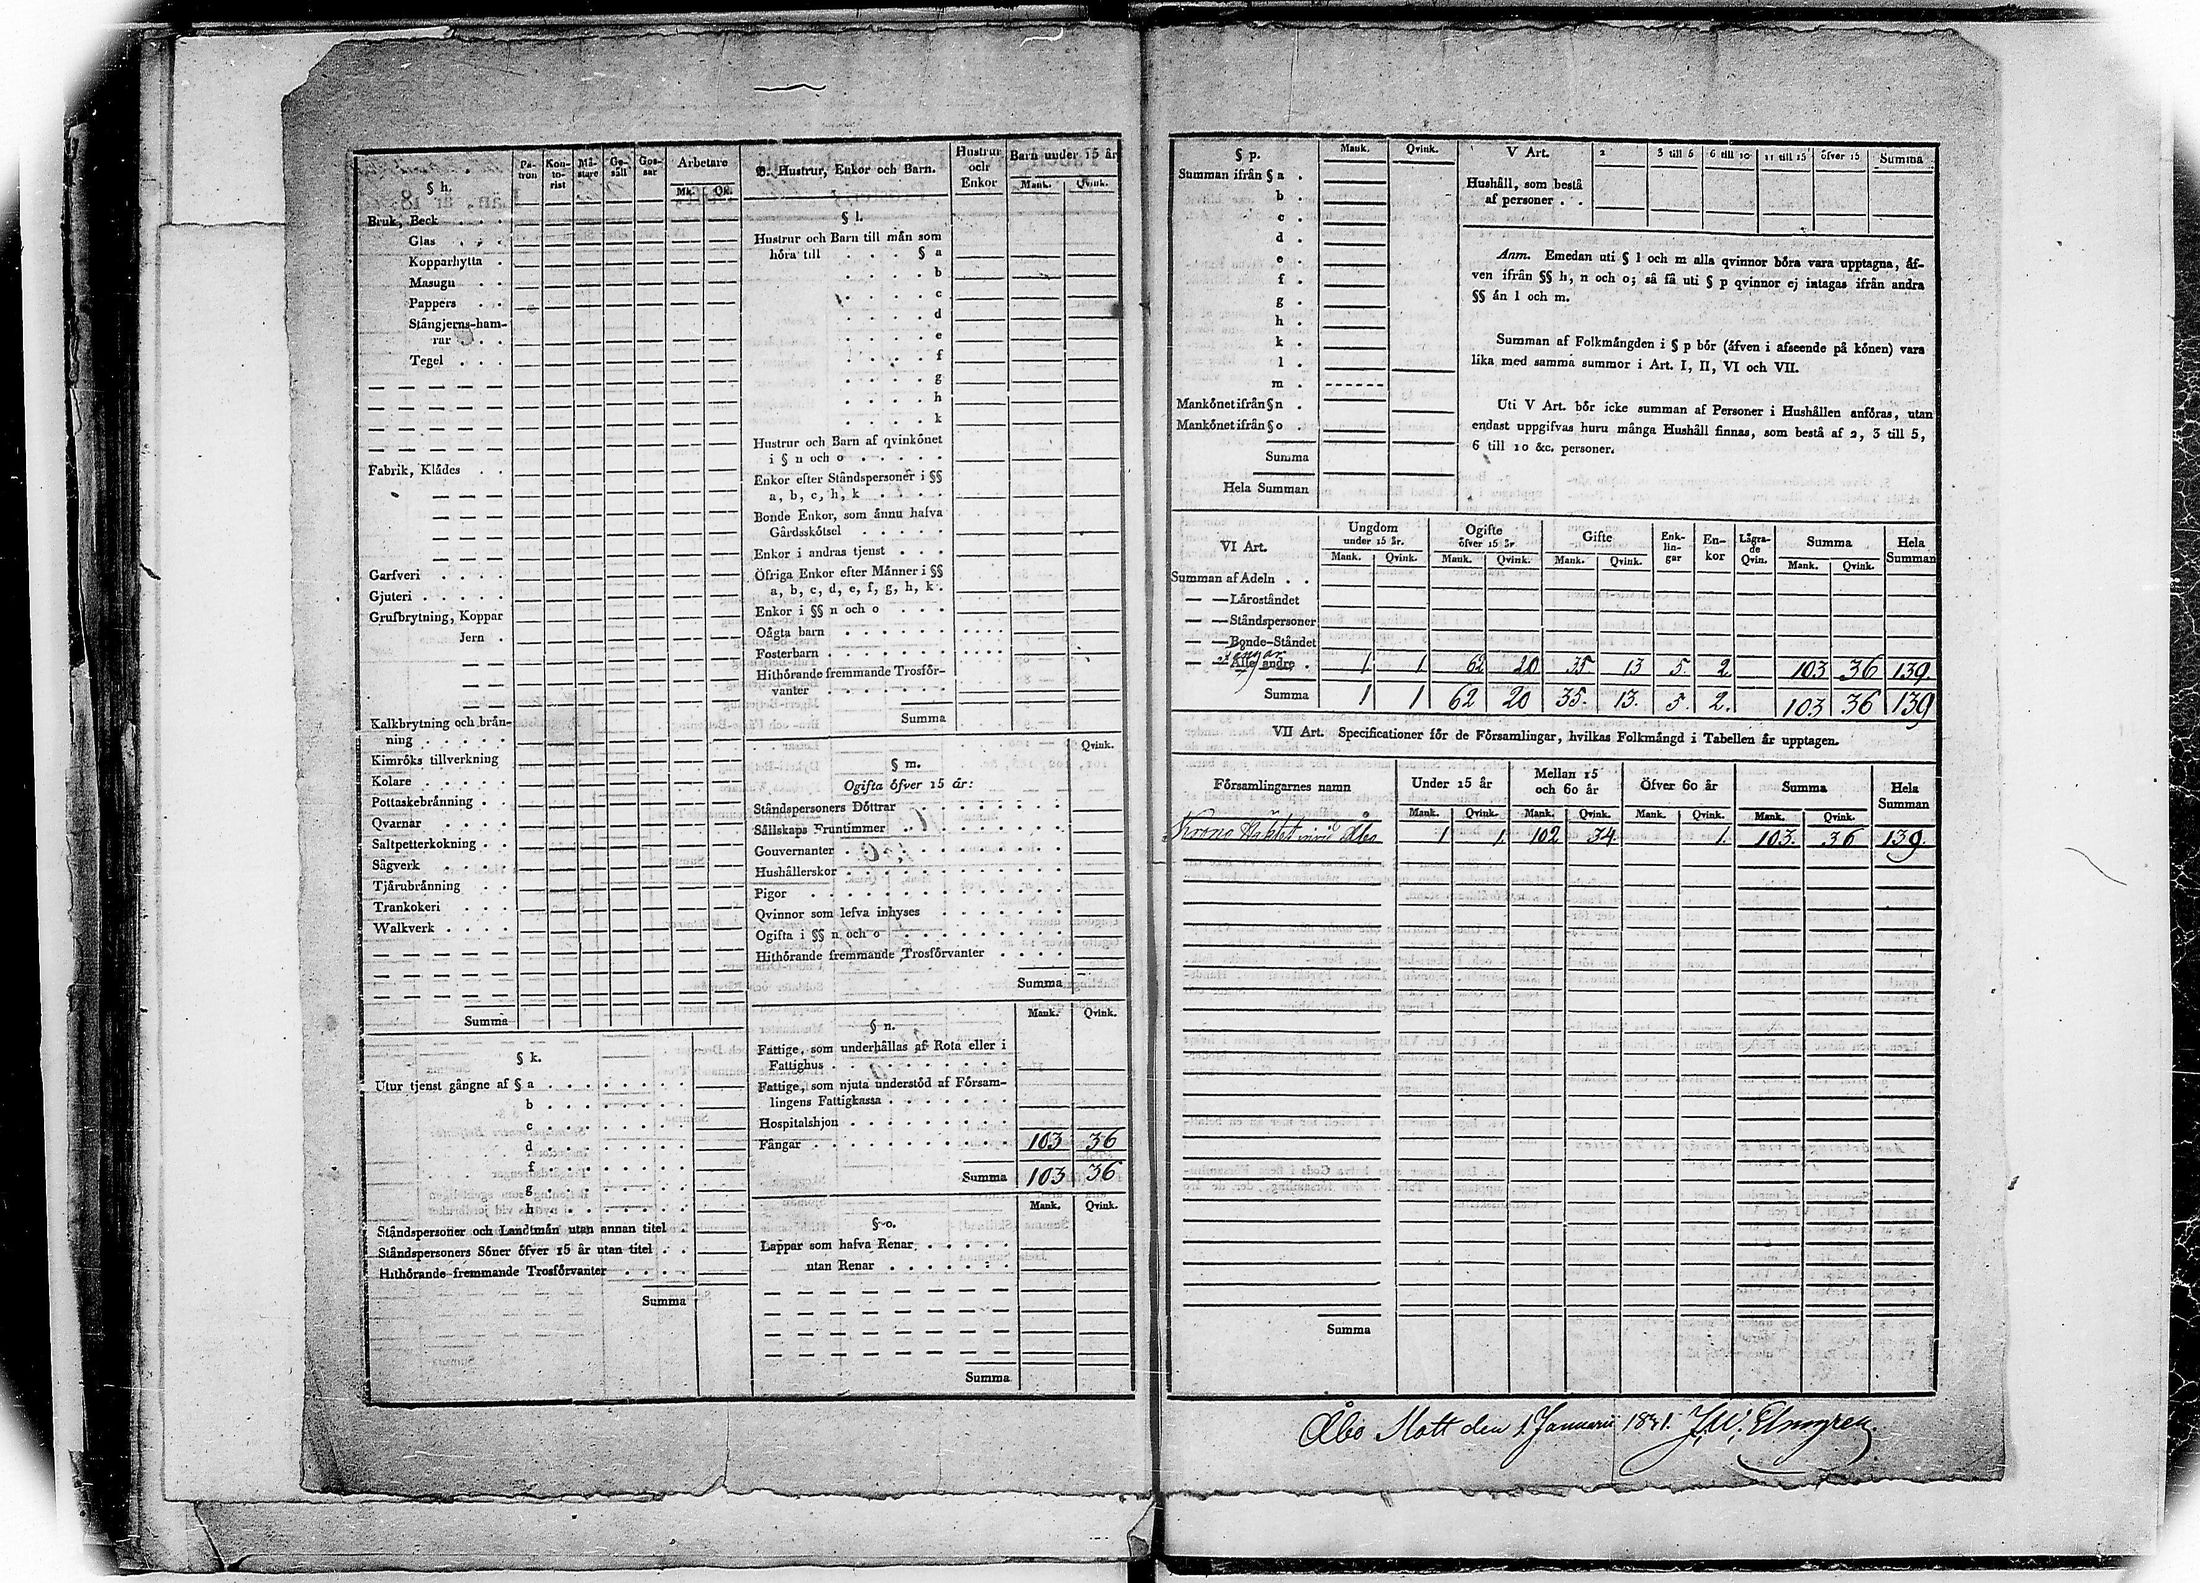 § h.
Pa-tron Kon-to-rist Må-stare Ge-säll Gos-sar Arbetare
Mk. Qk.
Bruk, Beck
Glas
Kopparhytta
Masugn
Pappers
Stångjerns-ham-
rar
Tegel
Fabrik, Klådes
Garfveri
Gjuteri
Grufbrytning, Koppar
Jern
Kalkbrytning och brån-
ning
Kimróks tillverkning
Kolare
Pottaskebrånning
Qvarnar
Saltpetterkokning
Sågverk
Tjårubrånning
Trankokeri
Walkverk
Summa
§ k.
Utur tjenst gångne af § a
b
c
d
f
g
h
Ståndspersoner och Landtmån utan annan titel
Ståndspersoners Sóner ófver 15 år utan titel
Hithórande fremmande Trosfórvanter
Summa
Hustrur, Enkor och Barn.
Hustrur
och
Enkor
Barn under 15 år
Mank. Qvink.
§ l.
Hustrur och Barn till mån som
hóra till § a
b
c
d
e
f
g
h
k
Hustrur och Barn af qvinkónet
i § n och o
Enkor efter Ståndspersoner i §§
a, b, c, h, k
Bonde Enkor, som ånnu hafva
Gårdsskótsel
Enkor i andras tjenst
Öfriga Enkor efter Månner i §§
a, b, c, d, e, f, g, h, k
Enkor i §§ n och o
Oågta barn
Fosterbarn
Hithórande fremmande Trosfór-
vanter
Summa
Qvink.
§ m.
Ogifta ófver 15 år:
Ståndspersoners Dóttrar
Sållskaps Fruntimmer
Gouvernanter
Hushållerskor
Pigor
Qvinnor som lefva inhyses
Ogifta i §§ n och o
Hithórande fremmande Trosfórvanter
Summa
Mank. Qvink.
§ n.
Fattige, som underhållas af Rota eller i
Fattighus
Fattige, som njuta understód af Fórsam-
lingens Fattigkassa
Hospitalshjon
Fångar 103 36
Summa 103 36
Mank. Qvink.
§ o.
Lappar som hafva Renar
utan Renar
Summa
§ p. Mank. Qvink.
Summan ifrån § a
b
c
d
e
f
g
h
k
l
m
Mankónet ifrån § n
Mankónet ifrån § o
Summa
Hela Summan
V Art. 2 3 till 5 6 till 10 11 till 15 öfver 15 Summa
Hushåll, som bestå
af personer
Anm. Emedan uti § l och m alla qvinnor bóra vara upptagna, åf-
ven ifrån §§ h, n och o; så få uti § p qvinnor ej intagas ifrån andra
§§ ån l och m.
Summan af Folkmångden i § p bór (åfven i afseende på kónen) vara
lika med samma summor i Art. I, II, VI och VII.
Uti V Art. bór icke summan af Personer i Hushållen anfóras, utan
endast uppgifvas huru många Hushåll finnas, som bestå af 2, 3 till 5,
6 till 10 &c. personer.
VI Art. Ungdom under 15 år. Ogifte öfver 15 år Gifte Enk-lin-gar En-kor Lågra-de Qvin. Summa Hela Summan
Mank. Qvink. Mank. Qvink. Mank. Qvink. Mank. Qvink.
Summan af Adeln
— — Låroståndet
— — Ståndspersoner
— — Bonde-Ståndet
— — Alle andre 1 1 62 20 35 13 5 2 103 36 139
Summa 1 1 62 20 35 13 5 2 103 36 139
VII Art. Specificationer fór de Fórsamlingar, hvilkas Folkmångd i Tabellen år upptagen.
Fórsamlingarnes namn Under 15 år Mellan 15 och 60 år Öfver 60 år Summa Hela Summan
Mank. Qvink. Mank. Qvink. Mank. Qvink. Mank. Qvink.
Krono Häktet invid Åbo 1 1 102 34 1 103 36 139
Summa
Åbo Slott den 1 Januarii 1841. J. W. Elmgren